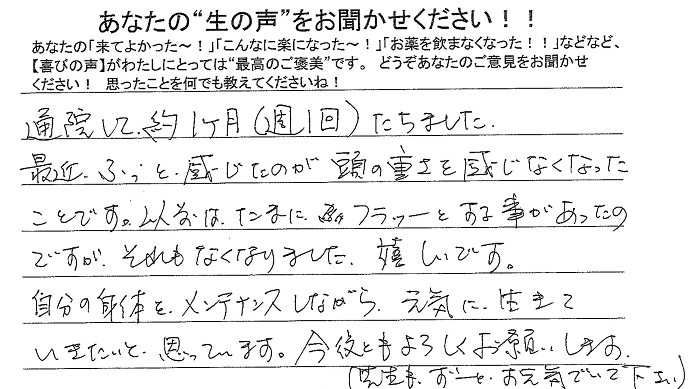 あなたの“生の声”をお聞かせください！！
あなたの「来てよかった～！」「こんなに楽になった～！」「お薬を飲まなくなった！！」などなど、
【喜びの声】がわたしにとっては“最高のご褒美”です。 どうぞあなたのご意見をお聞かせ
ください！ 思ったことを何でも教えてくださいね！
通院して、約1ヶ月（週1回）たちました。
最近、ふっと、感じたのが 頭の重さを感じなくなった
ことです。以前は、たまに、フラッーとする事があったの
ですが、それもなくなりました。嬉しいです。
自分の身体を、メンテナンスしながら、元気に、生きて
いきたいと、思っています。今後ともよろしくお願いします。
（先生も、ずーと、お元気でいて下さい）